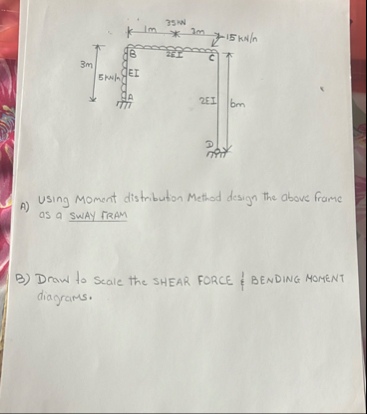 35 KN
1m 2m 15 KN/n
B 2EI C
3m
5KN/n EI
2EI 6m
A
D
A) Using Moment distribution Method design the above frame
as a SWAY FRAM
B) Draw to Scale the SHEAR FORCE & BENDING MOMENT
diagrams.